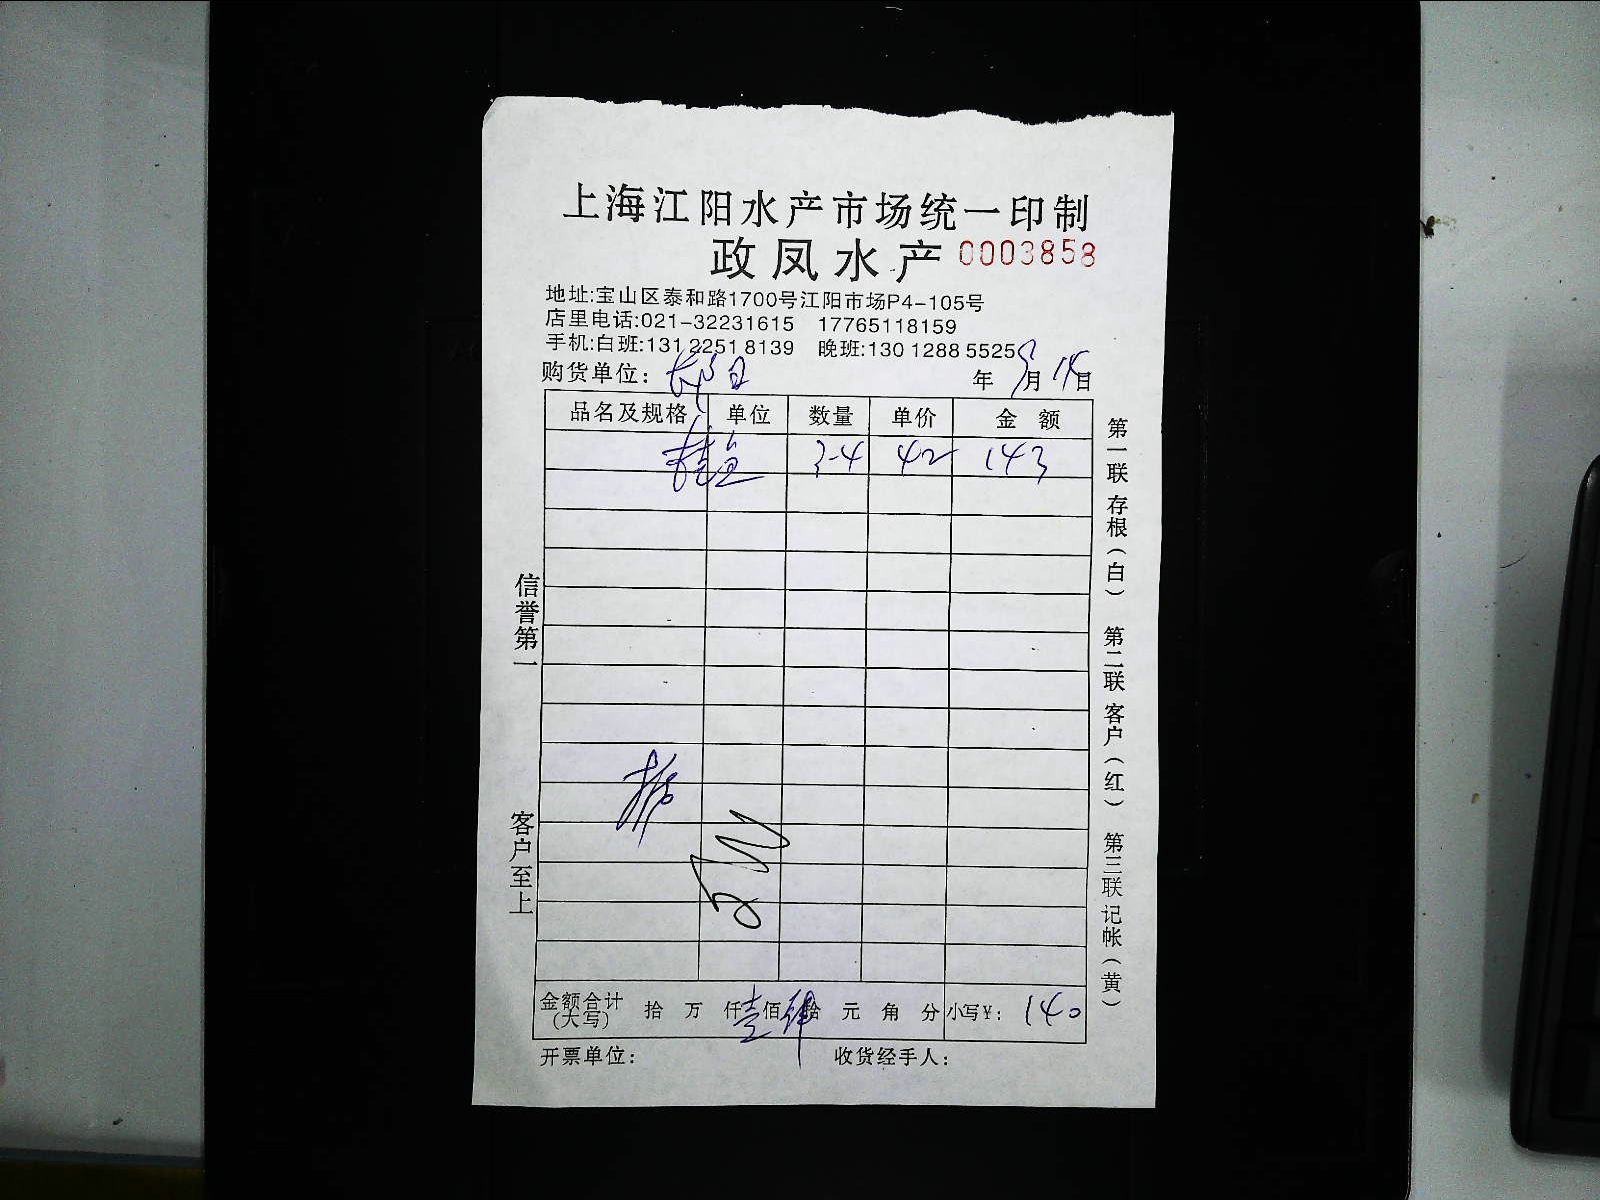 上海江阳水产市场统一印制
政凤水产 0003858
地址:宝山区泰和路1700号江阳市场P4-105号
店里电话:021-32231615 17765118159
手机:白班:131 2251 8139 晚班:130 1288 5525
购货单位: 年 9月 14日
品名及规格 单位 数量 单价 金额
桂鱼 3-4 42 143
信誉第一
客户至上
第一联 存根(白) 第二联 客户(红) 第三联 记帐(黄)
金额合计(大写) 拾 万 仟 壹佰 肆拾 元 角 分 小写¥: 140
开票单位: 收货经手人: